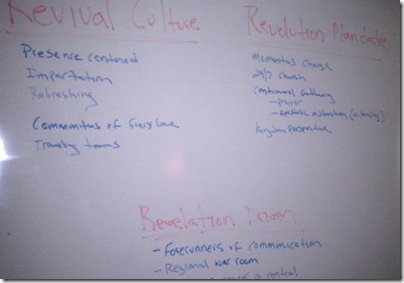 Revival Culture
Presence centered
Impartation
Refreshing
Communities of fiery love
Traveling teams
Revolution Mandate
Momentus Change
24/7 church
Continual Gathering
- prayer
- Apostolic
Kingdom Perspective
Revelation Driven
- Forerunners of communication
- Regional war room
is central